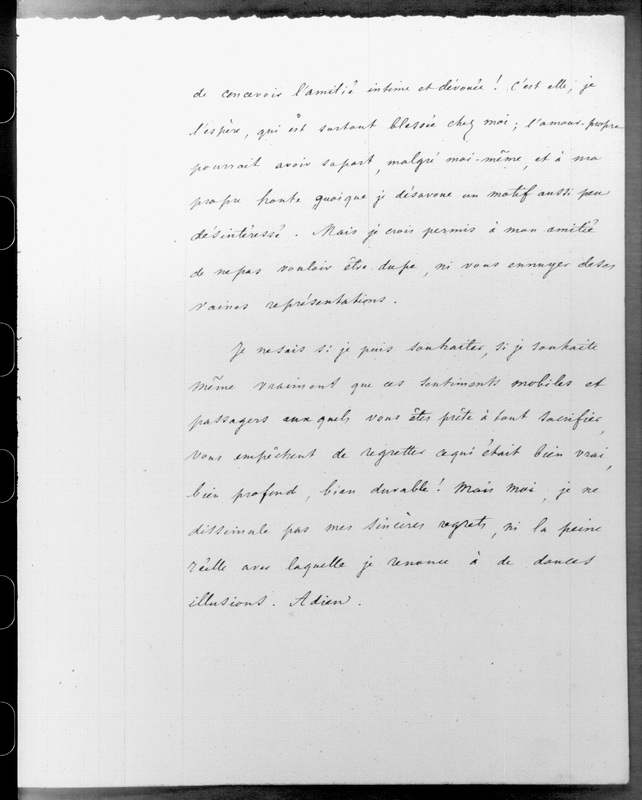 de concevoir l'amitié intime et dévouée! C'est elle, je
l'espère, qui est surtout blessée chez moi; l'amour-propre
pourrait avoir sa part, malgré moi-même, et à ma
propre honte quoique je désavoue un motif aussi peu
désintéressé. Mais je crois permis à mon amitié
de ne pas vouloir être dupe, ni vous ennuyer de ses
vaines représentations.
Je ne sais si je puis souhaiter, si je souhaite
même vraiment que ces sentiments mobiles et
passagers auxquels vous êtes prête à tout sacrifier,
vous empêchent de regretter ce qui était bien vrai,
bien profond, bien durable! Mais moi, je ne
dissimule pas mes sincères regrets, ni la peine
réelle avec laquelle je renonce à de douces
illusions. Adieu.